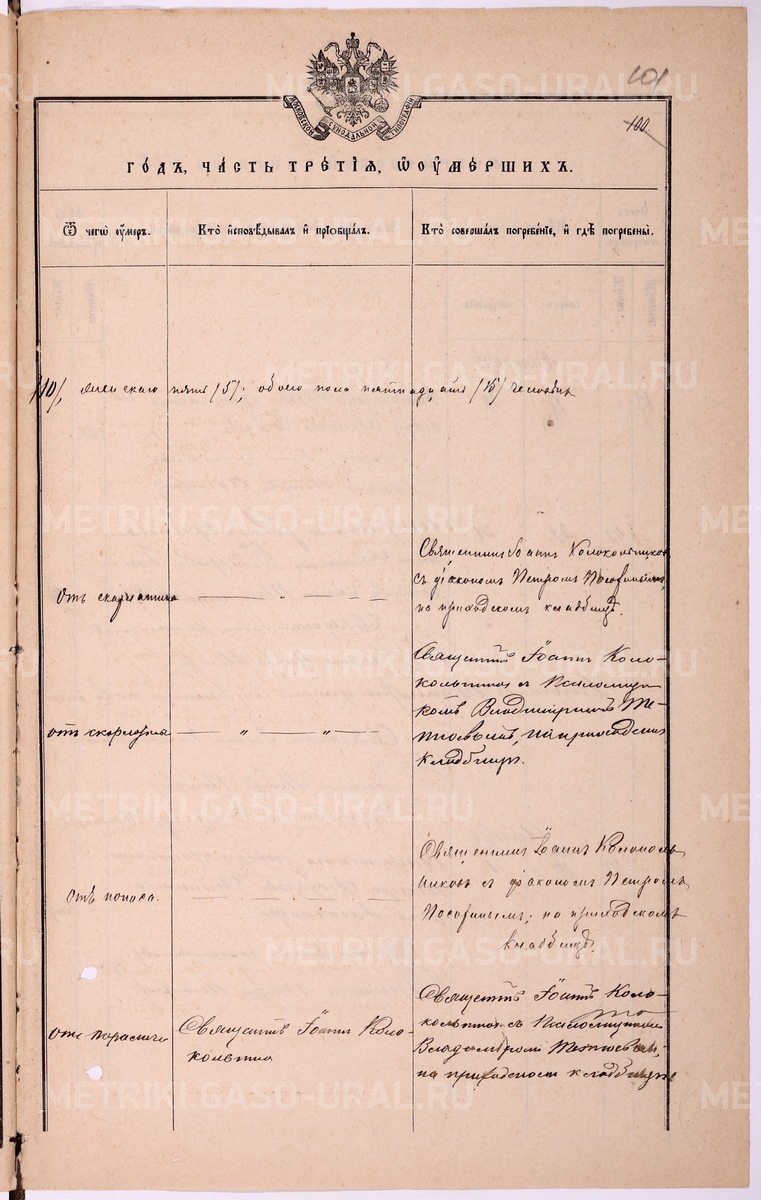 101
100
МОСКОВСКОЙ СѴНОДАЛЬНОЙ ТИПОГРАФІИ
ГОДЪ, ЧАСТЬ ТРЕТІЯ, Ѡ ОУМЕРШИХЪ.
Ѿ чегѡ оумеръ.
Кто исповѣдывалъ и пріобщалъ.
Кто совершалъ погребеніе, и гдѣ погребены.
/10/, женскаго пять /5/; обоего пола пятнадцать /15/ человѣкъ
Отъ скарлатины
Священникъ Іоаннъ Колокольников
съ діакономъ Петромъ
на приходскомъ кладбищѣ.
отъ скарлатины
Священникъ Іоаннъ Коло-
кольников съ Псаломщи
комъ Владимиромъ
на приходском
кладбищѣ.
Отъ поноса.
Священникъ Іоаннъ Коло коль
никовъ съ діакономъ Петромъ
на приходскомъ
кладбищѣ.
отъ паралича
Священникъ Іоаннъ Коло-
кольников
Священникъ Іоаннъ Коло-
кольников съ Псаломщиком
Владимиром
на приходском кладбищѣ
METRIKI.GASO-URAL.RU